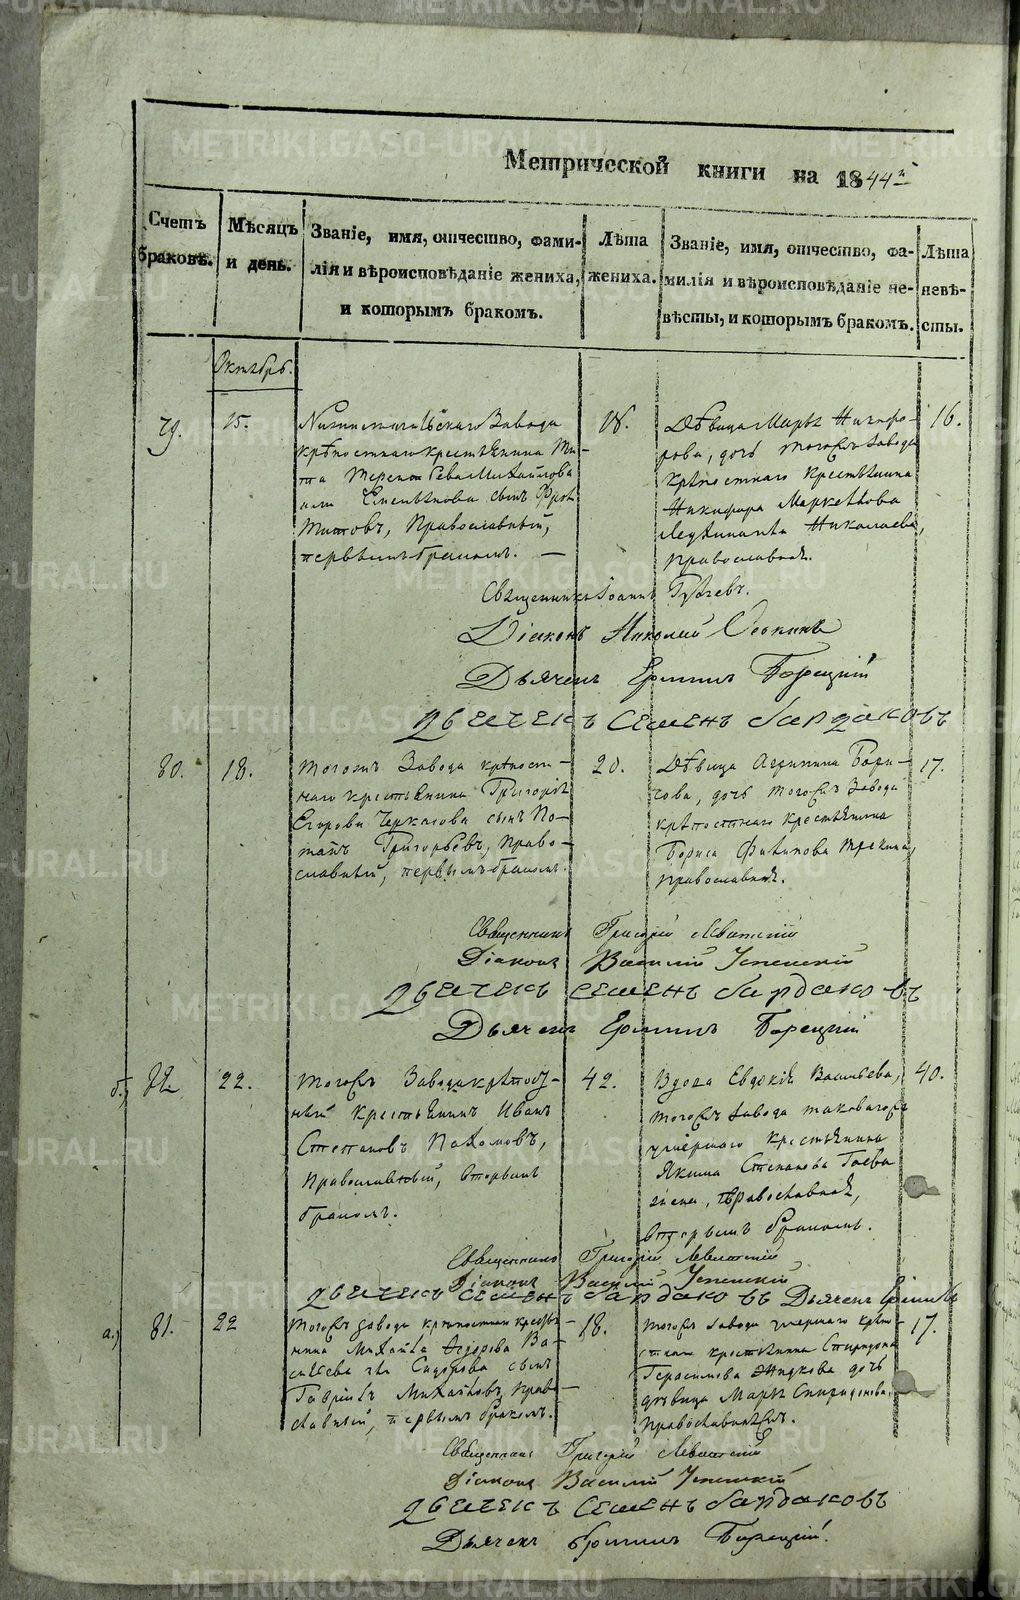 METRIKI.GASO-URAL.RU
Метрической книги на 1844й
Счетъ браковъ.
Мѣсяцъ и день.
Званіе, имя, отчество, фами-
лія и вѣроисповѣданіе жениха,
и которымъ бракомъ.
Лѣта
жениха.
Званіе, имя, отчество, фа-
милія и вѣроисповѣданіе не-
вѣсты, и которымъ бракомъ.
Лѣта
невѣ-
сты.
Октябрь.
79.
15.
Завода
крѣпостнаго крестьянина Ти-
та Михайлова
или Емельянова сынъ
Титовъ, Православный,
первымъ бракомъ.
18.
Дѣвица Марья Никифо-
рова, дочь тогожъ Завода
крѣпостнаго крестьянина
Никифора
Николаева,
православная.
16.
Священникъ Іоаннъ
Діаконъ Николай
Дьячекъ Ермилъ Борецкій
Дьячекъ Семенъ Бардаковъ
80.
18.
Тогожъ Завода крѣпост-
наго крестьянина Григорія
Егорова Черкасова сынъ По-
тапъ Григорьевъ, Право-
славный, первымъ бракомъ.
20.
Дѣвица Агрипина Бори-
сова, дочь тогожъ Завода
крѣпостнаго крестьянина
Бориса Филипова
православная.
17.
Священникъ Григорій Левитскій
Діаконъ Василій Успенскій
Дьячекъ Семенъ Бардаковъ
Дьячекъ Ермилъ Борецкій
б.,
82
22.
Тогожъ Завода крѣпост-
ный крестьянинъ Иванъ
Степановъ Пахомовъ,
Православный, вторымъ
бракомъ.
42.
Вдова Евдокія Васильева,
тогожъ Завода таковагожъ
умершаго крестьянина
Якима Степанова Гаева
жена, Православная,
вторымъ бракомъ.
40.
Священникъ Григорій Левитскій
Діаконъ Василій Успенскій
Дьячекъ Семенъ Бардаковъ Дьячекъ Ермилъ
а.,
81.
22
Тогожъ завода крѣпостнаго кресть-
янина Михайла Федорова Ва-
Сидорова сынъ
Гаврилъ Михайловъ, Право-
славный, первымъ бракомъ.
18.
Тогожъ завода умершаго крѣпо-
стнаго крестьянина Спиридона
Герасимова Жидкова дочь
дѣвица Марья Спиридонова,
православная.
17.
Священникъ Григорій Левитскій
Діаконъ Василій Успенскій
Дьячекъ Семенъ Бардаковъ
Дьячекъ Ермилъ Борецкій.